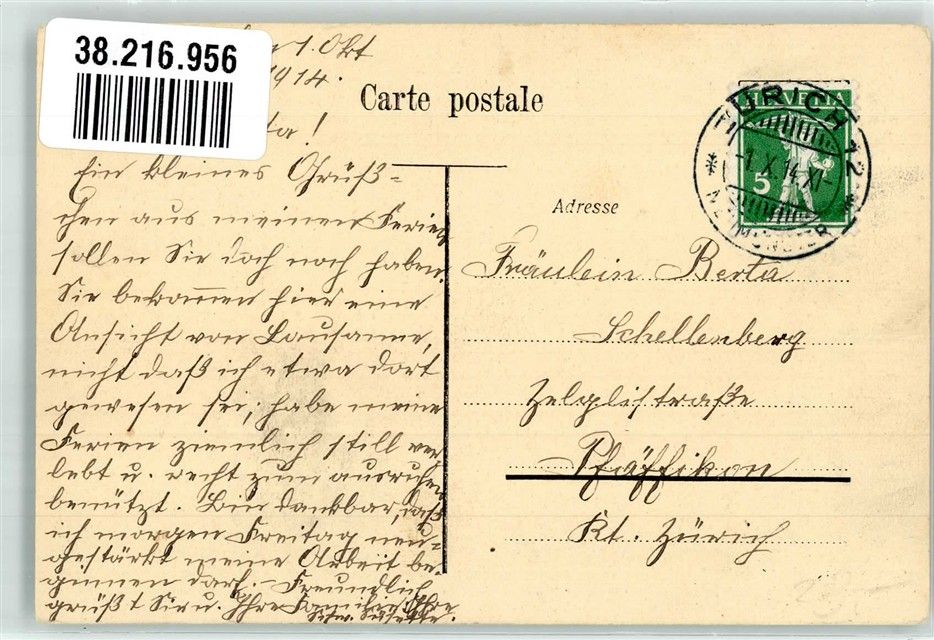 38.216.956
1. Okt
1914.
Carte postale
HELVETIA
5
ZÜRICH 12
-1.X.14.XI-
NEUMÜNSTER
Ein kleines Grüß-
chen aus meinen Ferien
sollen Sie doch noch haben.
Sie bekommen hier eine
Ansicht von Lausanne,
nicht daß ich etwa dort
gewesen sei; habe meine
Ferien ziemlich still ver
lebt u. recht zum ausruhen
benützt. Bin dankbar, daß
ich morgen Freitag neu-
gestärkt meine Arbeit be-
ginnen darf. – Freundlich
grüßt Sie u. Ihre Familie Ihre
Adresse
Fräulein Berta
Schellenberg
Zelglistraße
Pfäffikon
Kt. Zürich